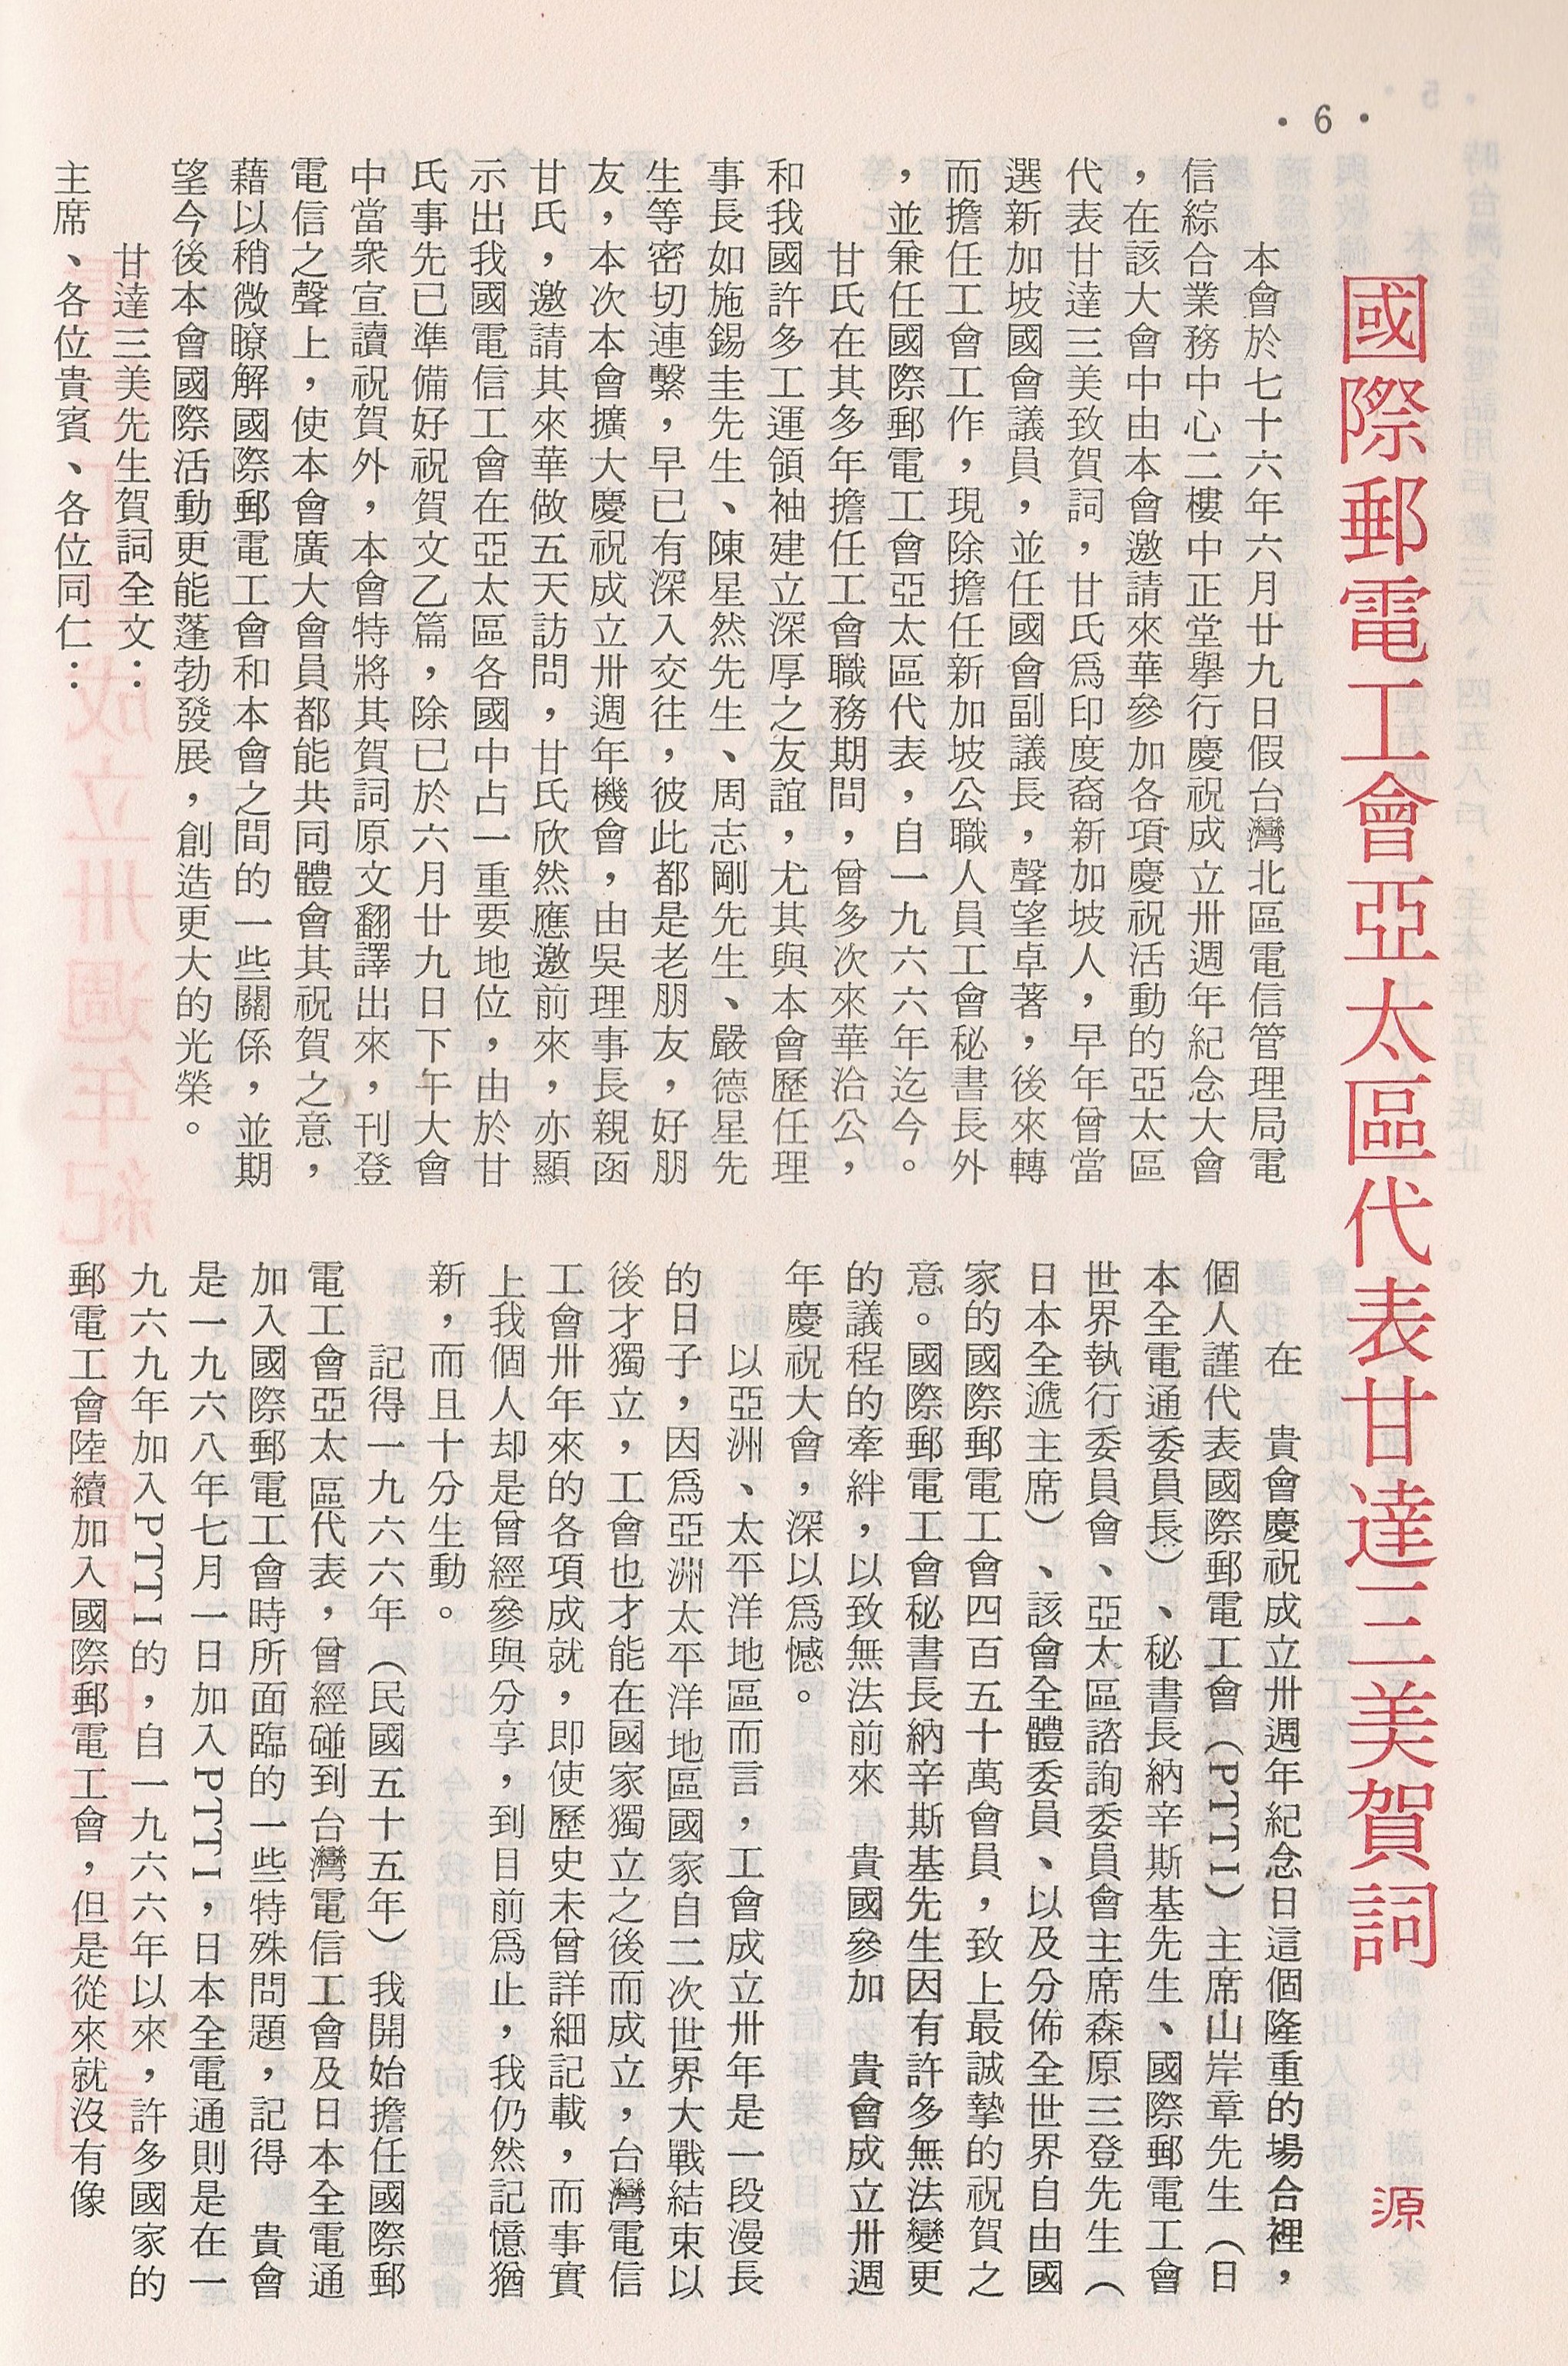 •6•
國際郵電工會亞太區代表甘達三美賀詞
源
本會於七十六年六月廿九日假台灣北區電信管理局電
信綜合業務中心二樓中正堂舉行慶祝成立卅週年紀念大會
，在該大會中由本會邀請來華參加各項慶祝活動的亞太區
代表甘達三美致賀詞，甘氏爲印度裔新加坡人，早年曾當
選新加坡國會議員，並任國會副議長，聲望卓著，後來轉
而擔任工會工作，現除擔任新加坡公職人員工會秘書長外
，並兼任國際郵電工會亞太區代表，自一九六六年迄今。
甘氏在其多年擔任工會職務期間，曾多次來華洽公，
和我國許多工運領袖建立深厚之友誼，尤其與本會歷任理
事長如施錫圭先生、陳星然先生、周志剛先生、嚴德星先
生等密切連繫，早已有深入交往，彼此都是老朋友，好朋
友，本次本會擴大慶祝成立卅週年機會，由吳理事長親函
甘氏，邀請其來華做五天訪問，甘氏欣然應邀前來，亦顯
示出我國電信工會在亞太區各國中占一重要地位，由於甘
氏事先已準備好祝賀文乙篇，除已於六月廿九日下午大會
中當衆宣讀祝賀外，本會特將其賀詞原文翻譯出來，刊登
電信之聲上，使本會廣大會員都能共同體會其祝賀之意，
藉以稍微瞭解國際郵電工會和本會之間的一些關係，並期
望今後本會國際活動更能蓬勃發展，創造更大的光榮。
甘達三美先生賀詞全文：
主席、各位貴賓、各位同仁：
在　貴會慶祝成立卅週年紀念日這個隆重的場合裡，
個人謹代表國際郵電工會（PTTI）主席山岸章先生（日
本全電通委員長）、秘書長納辛斯基先生、國際郵電工會
世界執行委員會、亞太區諮詢委員會主席森原三登先生（
日本全遞主席）、該會全體委員、以及分佈全世界自由國
家的國際郵電工會四百五十萬會員，致上最誠摯的祝賀之
意。國際郵電工會秘書長納辛斯基先生因有許多無法變更
的議程的牽絆，以致無法前來　貴國參加　貴會成立卅週
年慶祝大會，深以爲憾。
以亞洲、太平洋地區而言，工會成立卅年是一段漫長
的日子，因爲亞洲太平洋地區國家自二次世界大戰結束以
後才獨立，工會也才能在國家獨立之後而成立，台灣電信
工會卅年來的各項成就，即使歷史未曾詳細記載，而事實
上我個人却是曾經參與分享，到目前爲止，我仍然記憶猶
新，而且十分生動。
記得一九六六年（民國五十五年）我開始擔任國際郵
電工會亞太區代表，曾經碰到台灣電信工會及日本全電通
加入國際郵電工會時所面臨的一些特殊問題，記得　貴會
是一九六八年七月一日加入PTTI，日本全電通則是在一
九六九年加入PTTI的，自一九六六年以來，許多國家的
郵電工會陸續加入國際郵電工會，但是從來就沒有像